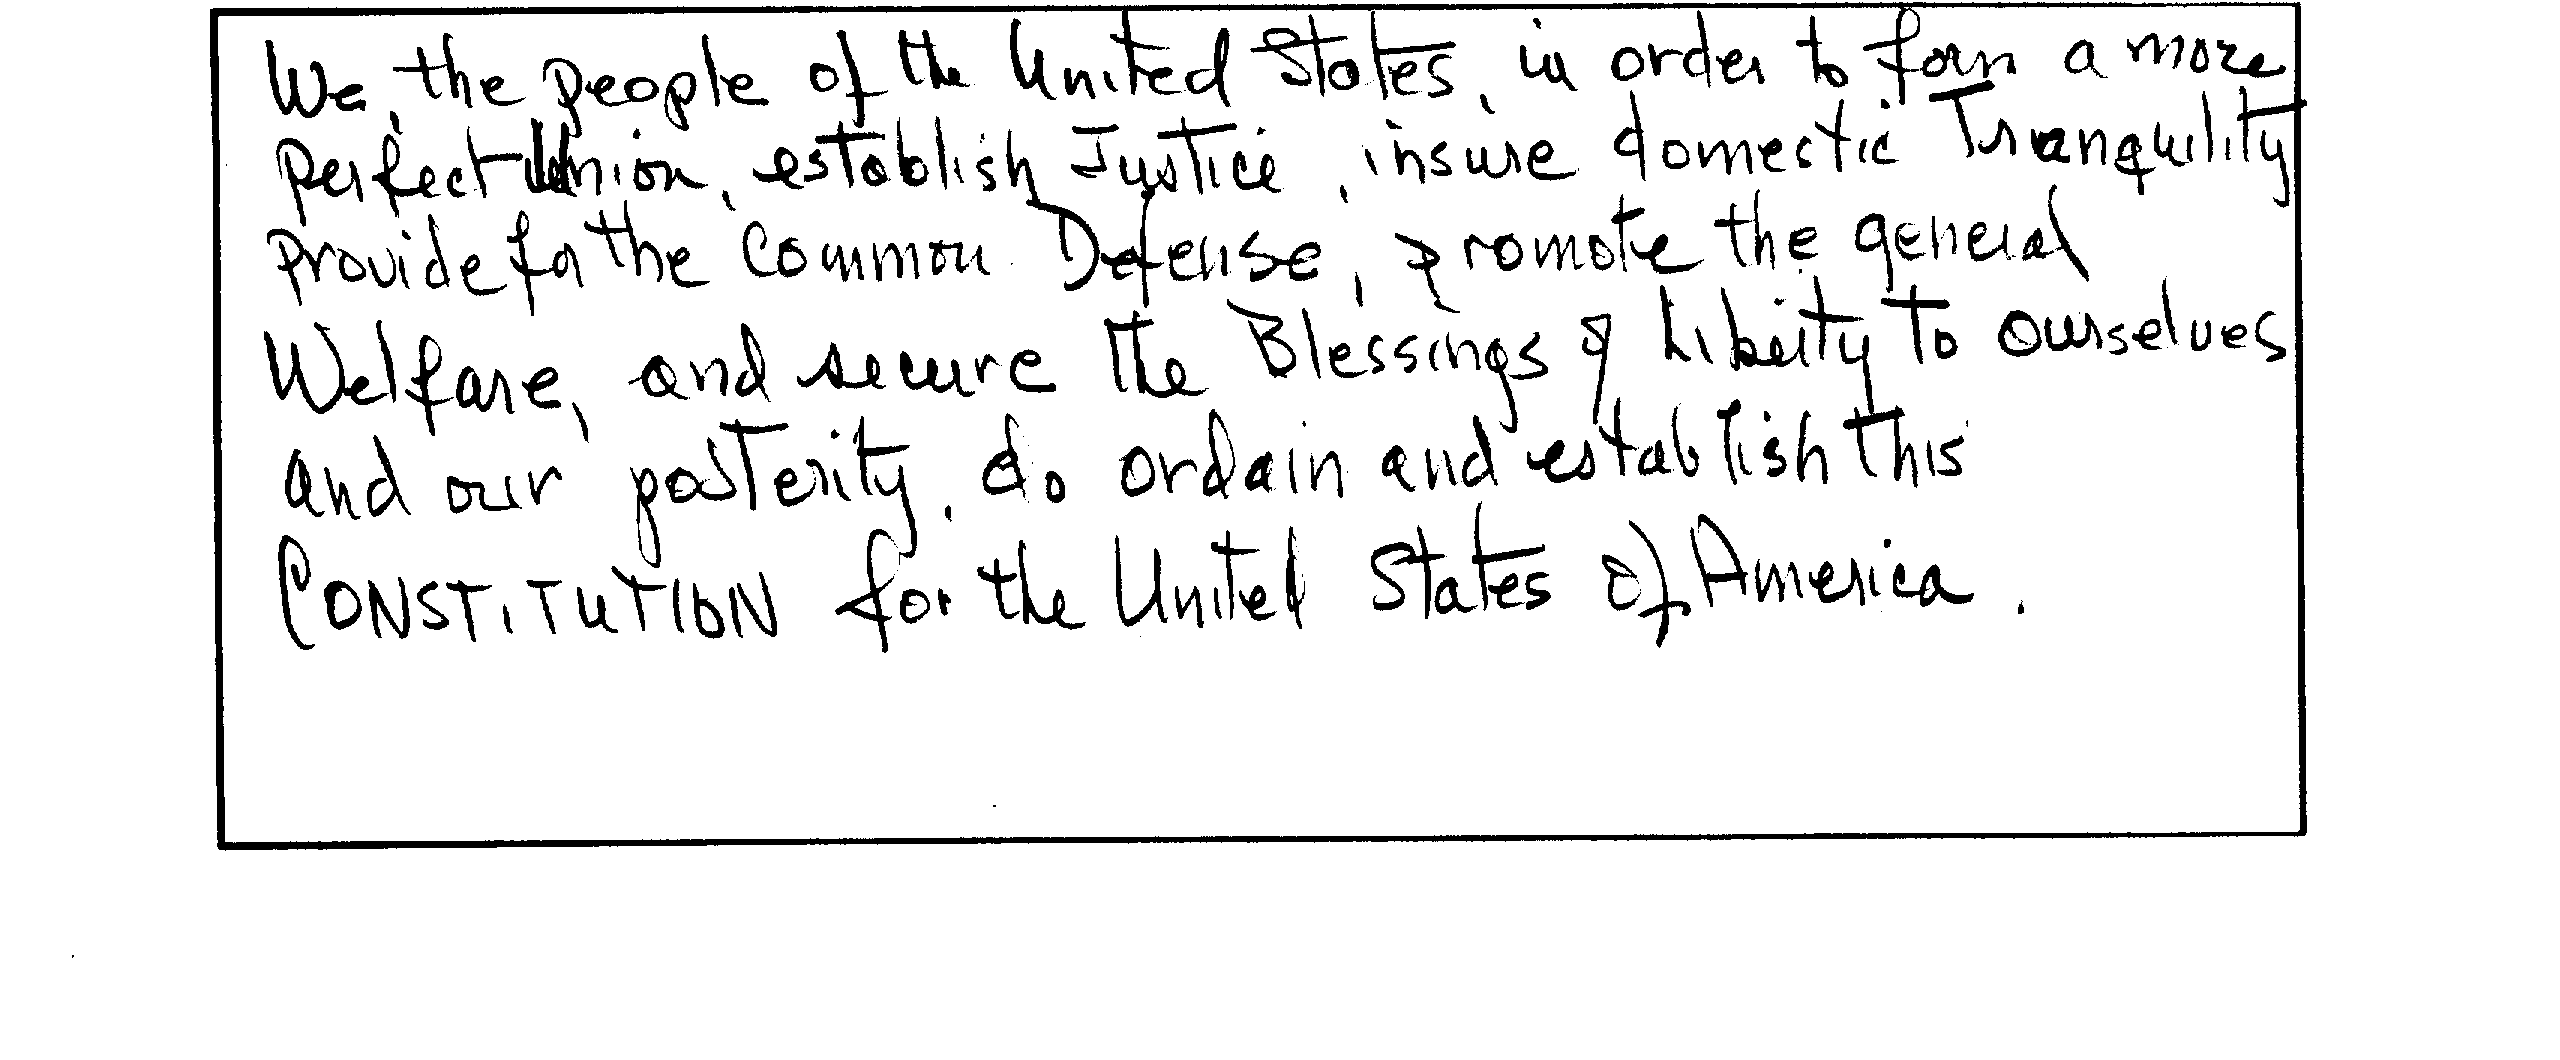 We, the people of the United States, in order to form a more
perfect Union, establish Justice, insure domestic Tranquility
provide for the Common Defense, promote the general
Welfare, and secure the Blessings of Liberty to ourselves
and our posterity, do ordain and establish this
CONSTITUTION for the United States of America.